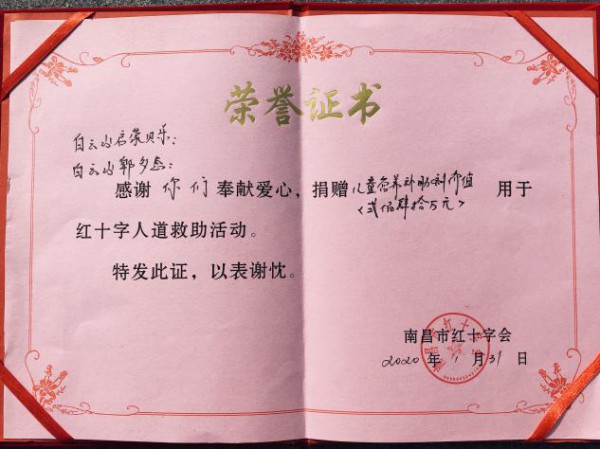 荣誉证书
白云山启蒙贝乐：
白云山郭乡志：
感谢 你们 奉献爱心，捐赠 儿童营养补助剂价值 用于
<贰佰肆拾万元>
红十字人道救助活动。
特发此证，以表谢忱。
南昌市红十字会
2020 年 1 月 31 日